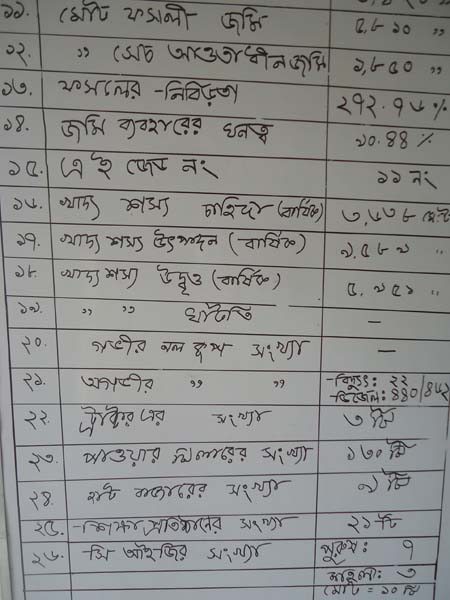 ১১. মোট ফসলী জমি ৫,৮১০ "
১২. " সেচ আওতাধীন জমি ১,৮৫০ "
১৩. ফসলের নিবিড়তা ২৭২.৭৬%
১৪. জমি ব্যবহারের ঘনত্ব ৯০.৪৪%
১৫. এ ই জেড নং ১১ নং
১৬. খাদ্য শস্য চাহিদা (বার্ষিক) ৩,৬৩৮
১৭. খাদ্য শস্য উৎপাদন (বার্ষিক) "
১৮. খাদ্য শস্য উদ্বৃত্ত (বার্ষিক) "
১৯. " " ঘাটতি —
২০. গভীর নলকূপ সংখ্যা —
২১. অগভীর " " -বিদ্যুৎ: ২২
-ডিজেল: ৪৪০/৪৬২
২২. ট্রাক্টরের সংখ্যা ৩ টি
২৩. পাওয়ার টিলারের সংখ্যা ১৬০ টি
২৪. হাট বাজারের সংখ্যা ৯ টি
২৫. শিক্ষা প্রতিষ্ঠানের সংখ্যা ২১টি
২৬. সি আইজির সংখ্যা পুরুষ: ৭
মহিলা: ৩
মোট = ১০ টি